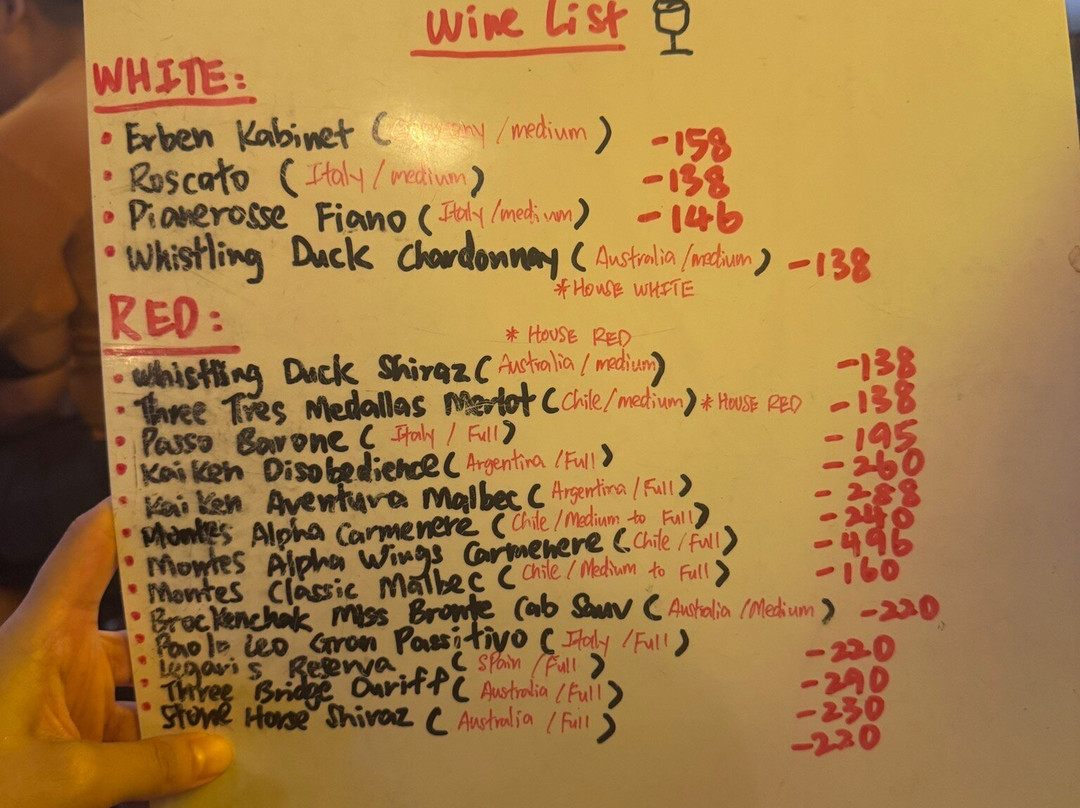 Wine List
WHITE:
• Erben Kabinet (Germany/medium) -158
• Roscato (Italy/medium) -138
• Pianerosse Fiano (Italy/medium) -146
• Whistling Duck Chardonnay (Australia/medium) -138
*HOUSE WHITE
RED:
* HOUSE RED
• Whistling Duck Shiraz (Australia/medium) -138
• Three Tres Medallas Merlot (Chile/medium) *HOUSE RED -138
• Passo Barone (Italy/Full) -195
• Kaiken Disobedience (Argentina/Full) -260
• Kai Ken Aventura Malbec (Argentina/Full) -288
• Montes Alpha Carmenere (Chile/Medium to Full) -240
• Montes Alpha Wings Carmenere (Chile/Full) -496
• Montes Classic Malbec (Chile/Medium to Full) -160
• Brockenchak Miss Bronte Cab Sauv (Australia/Medium) -220
• Paolo Leo Gran Passitivo (Italy/Full) -220
• Legaris Reserva (Spain/Full) -290
• Three Bridge Duriff (Australia/Full) -230
• Stone Horse Shiraz (Australia/Full) -220